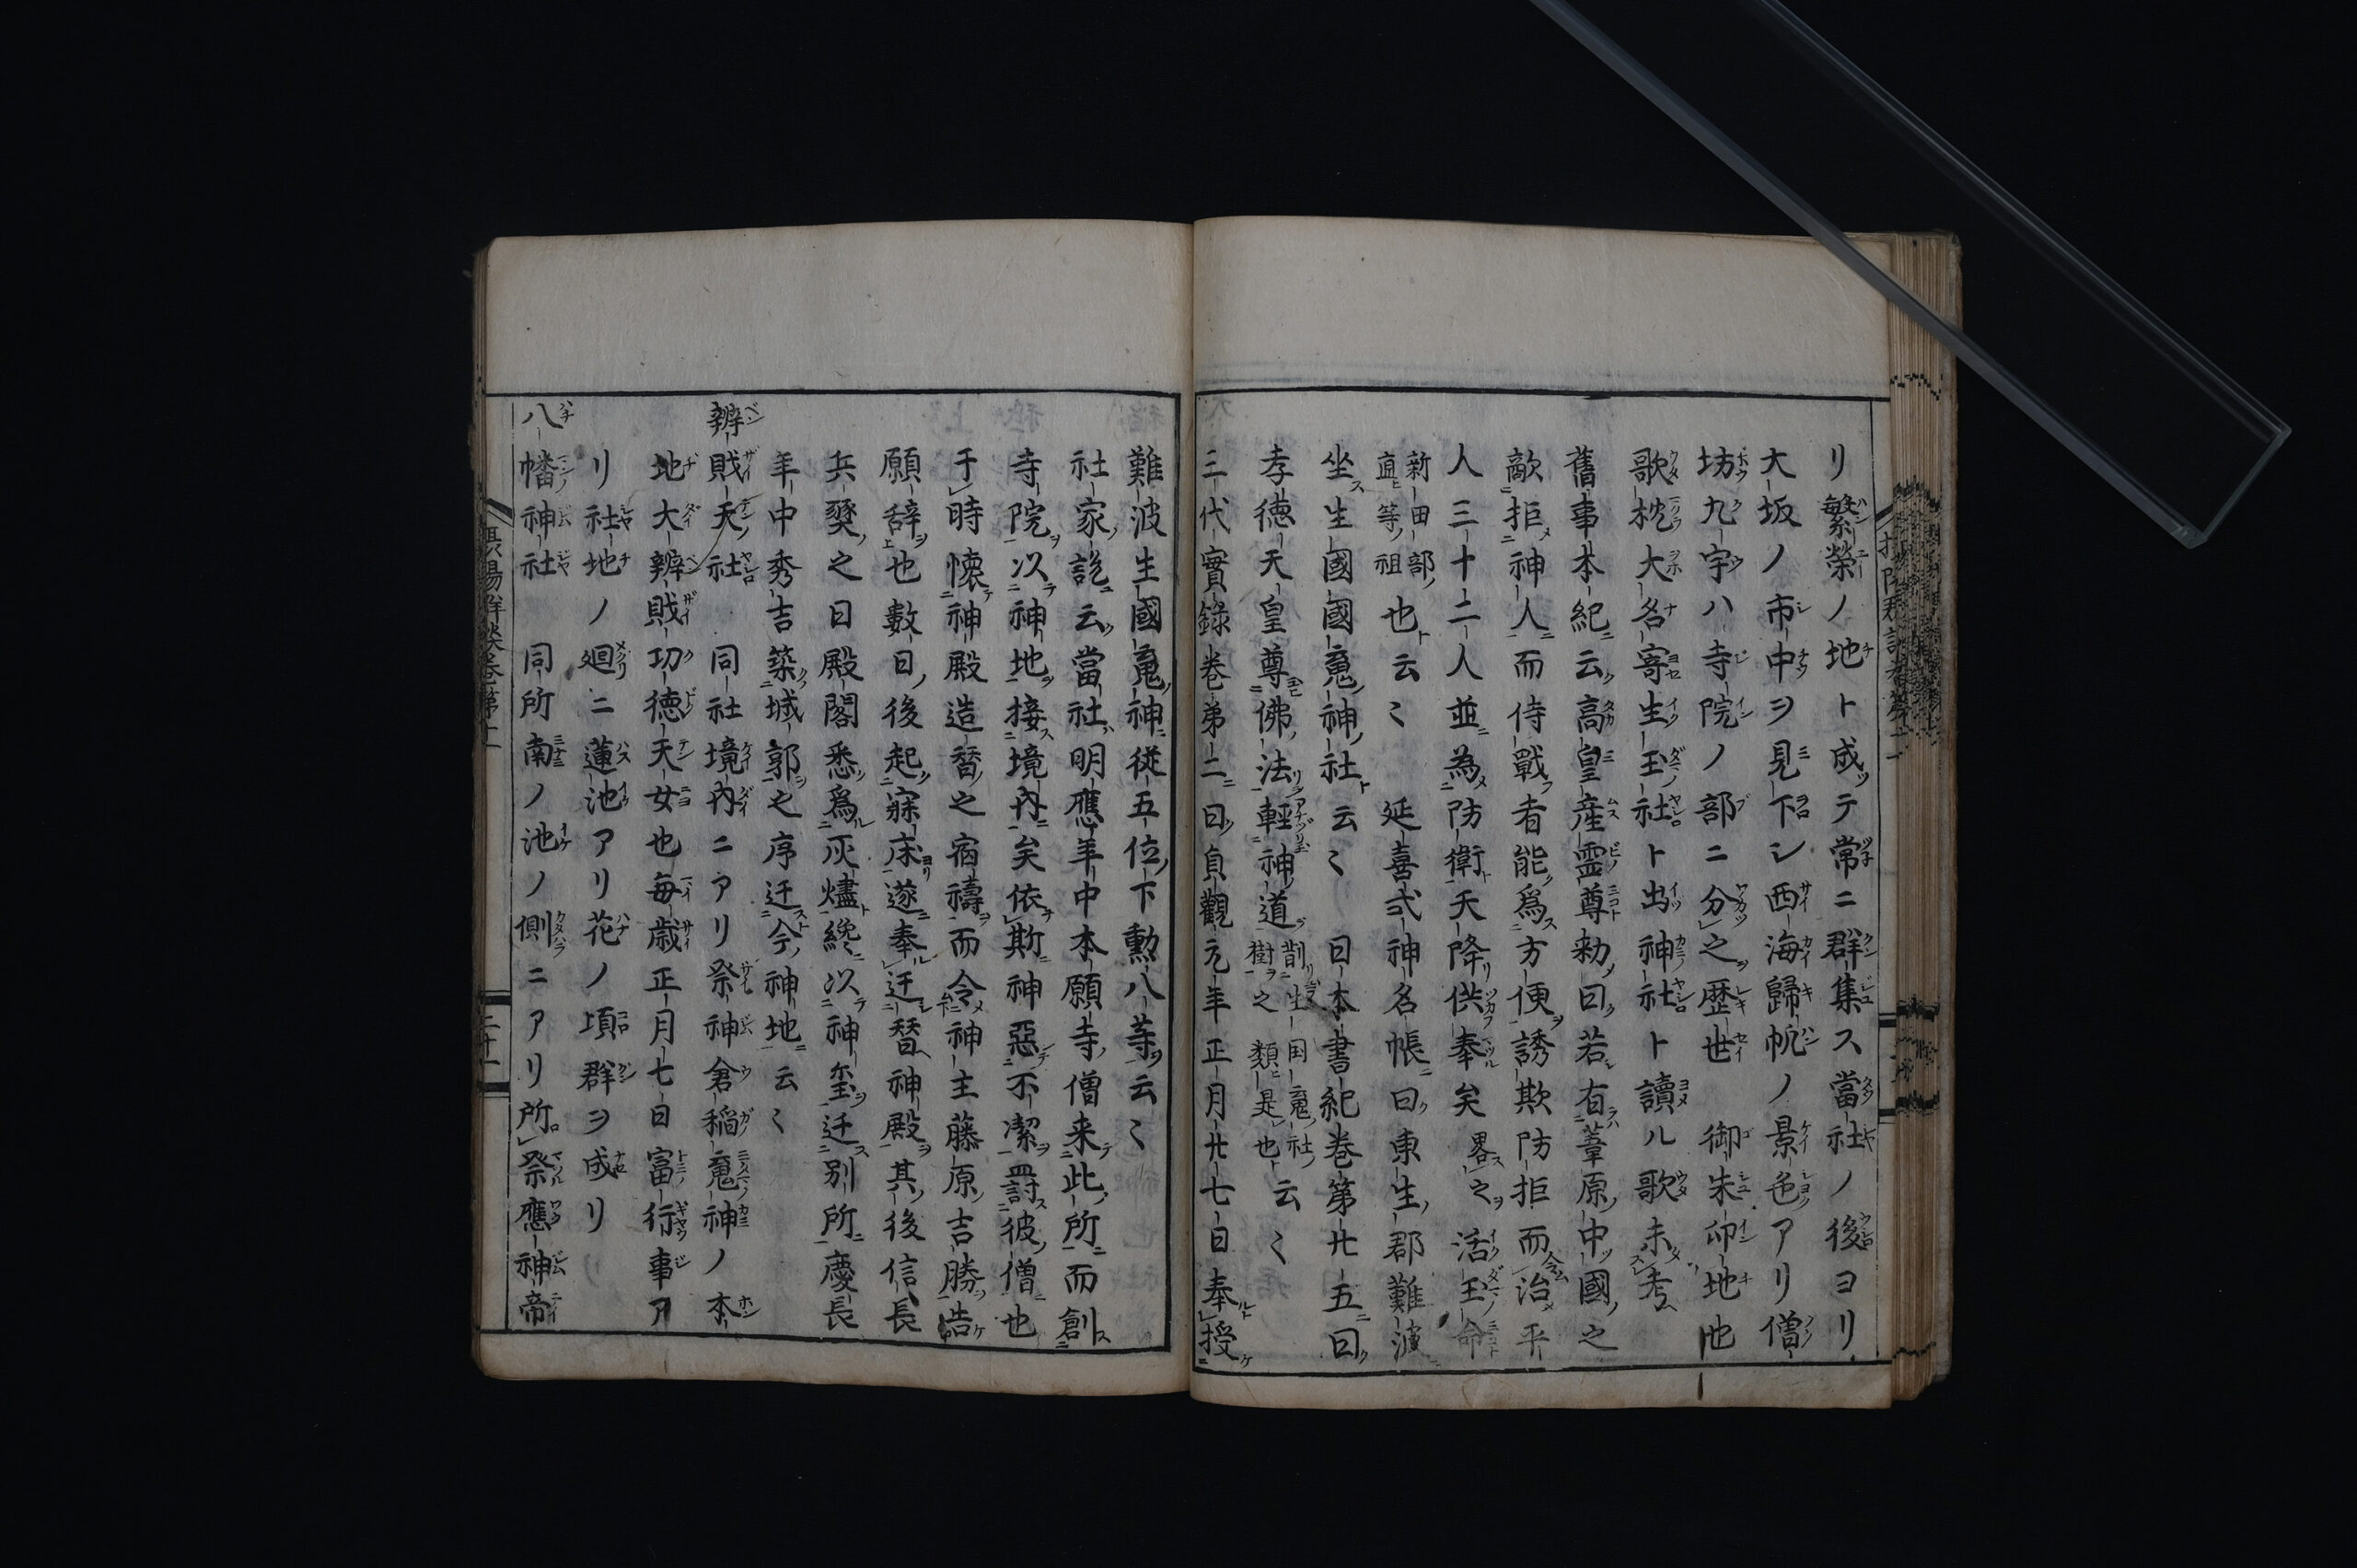 リ繁榮ノ地ト成テ常ニ群集ス當社ノ後ヨリ
大坂ノ市中ヲ見下シ西海歸帆ノ景色アリ僧
坊九宇ハ寺院ノ部ニ分之歴世 御朱印地也
歌枕大名寄生玉社ト出神社ト讀ル歌未考
舊事本紀云高皇産霊尊勅曰若有葦原中國之
敵拒神人而待戰者能爲方便誘欺防拒而令治平
人三十二人並為防衛天降供奉矣畧之活玉命
新田部直等祖也云々 延喜式神名帳曰東生郡難波
坐生國國魂神社云々 日本書紀巻第廿五曰
孝徳天皇尊佛法輕神道𣃥生国魂社樹之類是也云々
三代實録巻第二曰貞觀元年正月廿七日奉授
難波生國魂神従五位下勲八等云々
社家説云當社明應年中本願寺僧来此所而創
寺院以神地接境内矣依斯神惡不潔罸彼僧也
于時懐神殿造替之宿禱而令神主藤原吉勝告
願辞也數日後起寐床遂奉迁替神殿其後信長
兵㷼之日殿閣悉爲灰燼纔以神玺迁別所慶長
年中秀吉築城郭之序迁今神地云々
辨賎天社 同社境内ニアリ祭神倉稲魂神ノ本
地大辨賎功徳天女也毎歳正月七日富行事ア
リ社地ノ廻ニ蓮池アリ花ノ頃群ヲ成リ
八幡神社 同所南ノ池ノ側ニアリ所祭應神帝
摂陽群談巻第十一